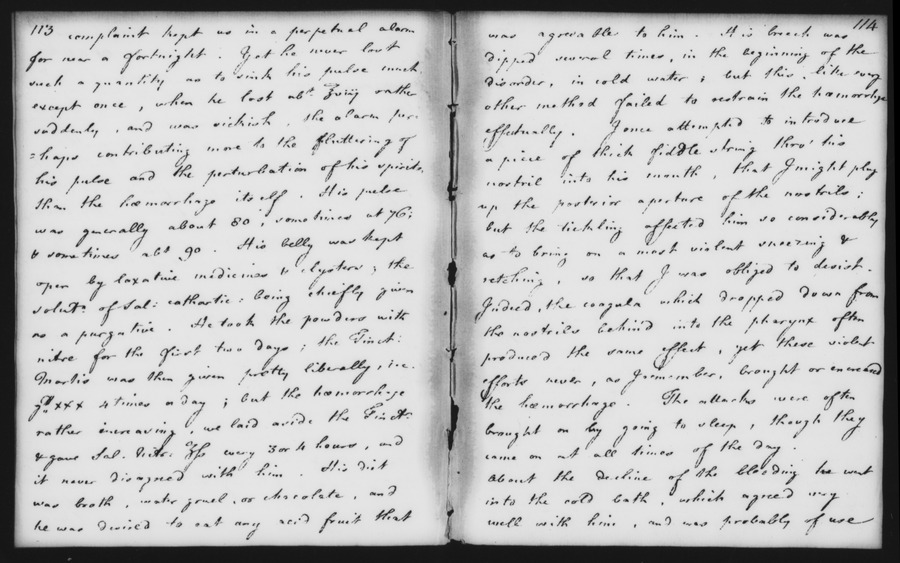 113 complaint kept us in a perpetual alarm
for near a fortnight. Yet he never lost
such a quantity as to sink his pulse much,
except once, when he lost abt. ℥viij rather
suddenly, and was sickish, the alarm per-
=haps contributing more to the fluttering of
his pulse and the perturbation of his spirits,
than the hœmorrhage itself. His pulse
was generally about 80; sometimes at 76;
& sometimes abt 90. His belly was kept
open by laxative medicines & clysters; the
solutn. of Sal: cathartic: being chiefly given
as a purgative. He took the powders with
nitre for the first two days; the Tinct:
Martis was then given pretty liberally, i.e.
gtt xxx 4 times a day; but the hœmorrhage
rather increasing, we laid aside the Tinct.
& gave Sal. Nitri ʒſs every 3 or 4 hours, and
it never disagreed with him. His diet
was broth, water gruel, or chocolate, and
he was desired to eat any acid fruit that
114
was agreeable to him. His breech was
dipped several times, in the beginning of the
disorder, in cold water; but this, like every
other method failed to restrain the hœmorrhage
effectually. I once attempted to introduce
a piece of thick fiddle string thro' his
nostril into his mouth, that I might plug
up the posterior aperture of the nostrils;
but the tickling affected him so considerably
as to bring on a most violent sneezing &
retching, so that I was obliged to desist.
Indeed, the coagula which dropped down from
the nostrils behind into the pharynx often
produced the same effect, yet these violent
efforts never, as I remember, brought or encreased
the hœmorrhage. The attacks were often
brought on by going to sleep, though they
came on at all times of the day.
About the decline of the bleeding he went
into the cold bath, which agreed very
well with him, and was probably of use